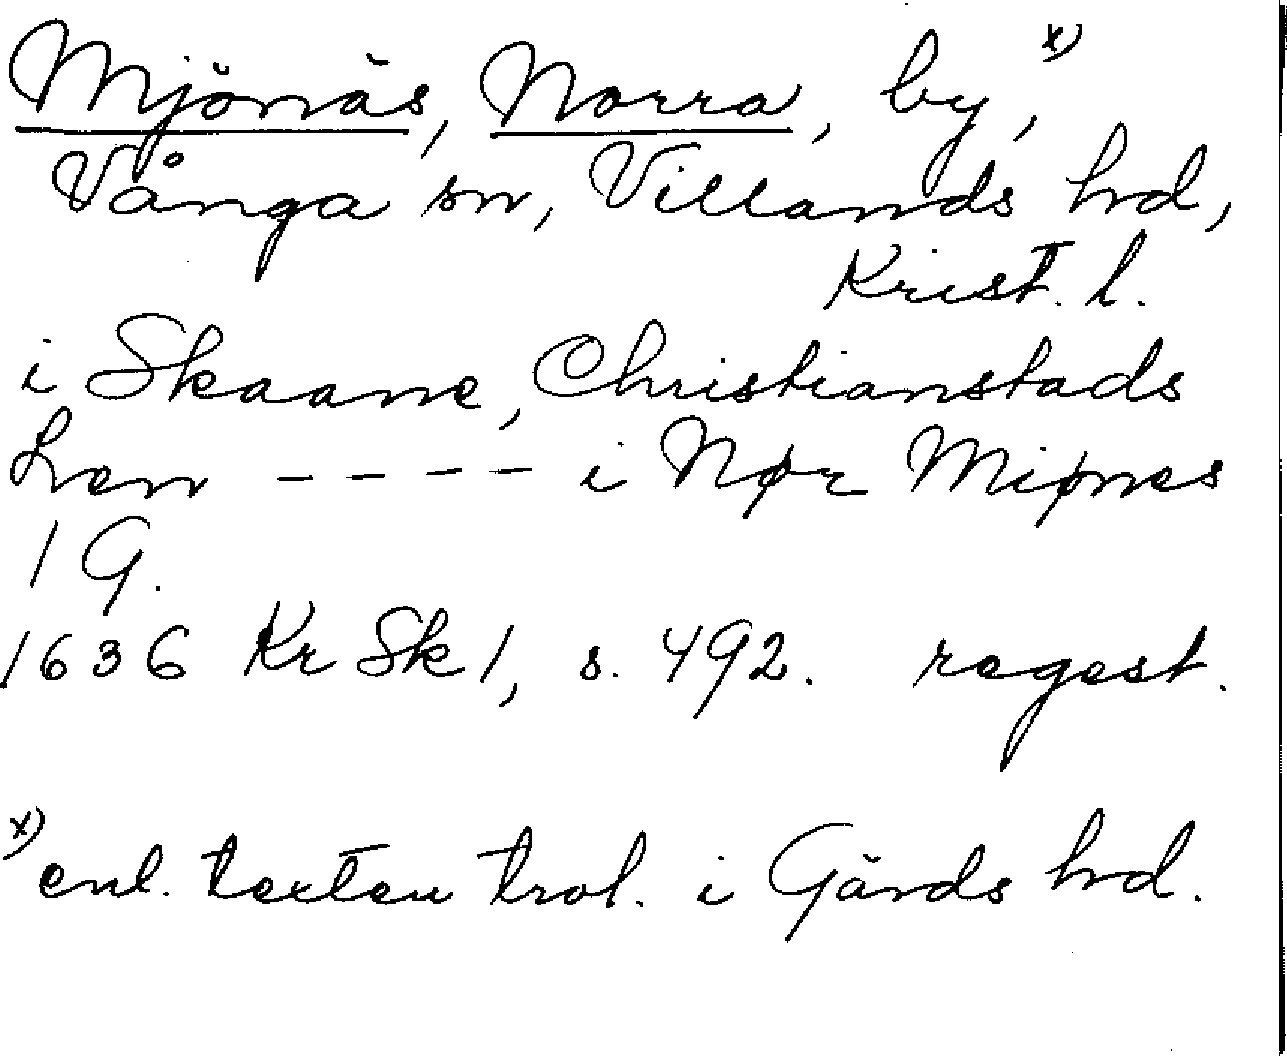 Mjönäs, Norra, by, x)
Vånga sn, Villands hd,
Krist. l.
i Skaane, Christianstads
Len - - - - i Nør Miønes
1 G.
1636 Kr Sk 1, s. 492. regest.
x) enl. texten trol. i Gärds hd.